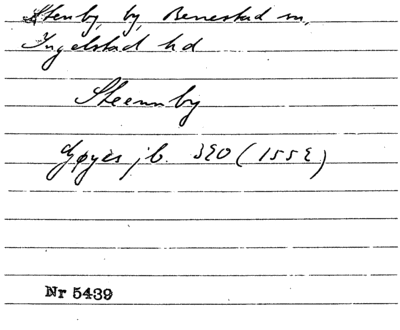 Stenby, by, Benestad sn,
Ingelstad hd
Steennby
Gøyes jb. 320 (1552)
Nr 5439